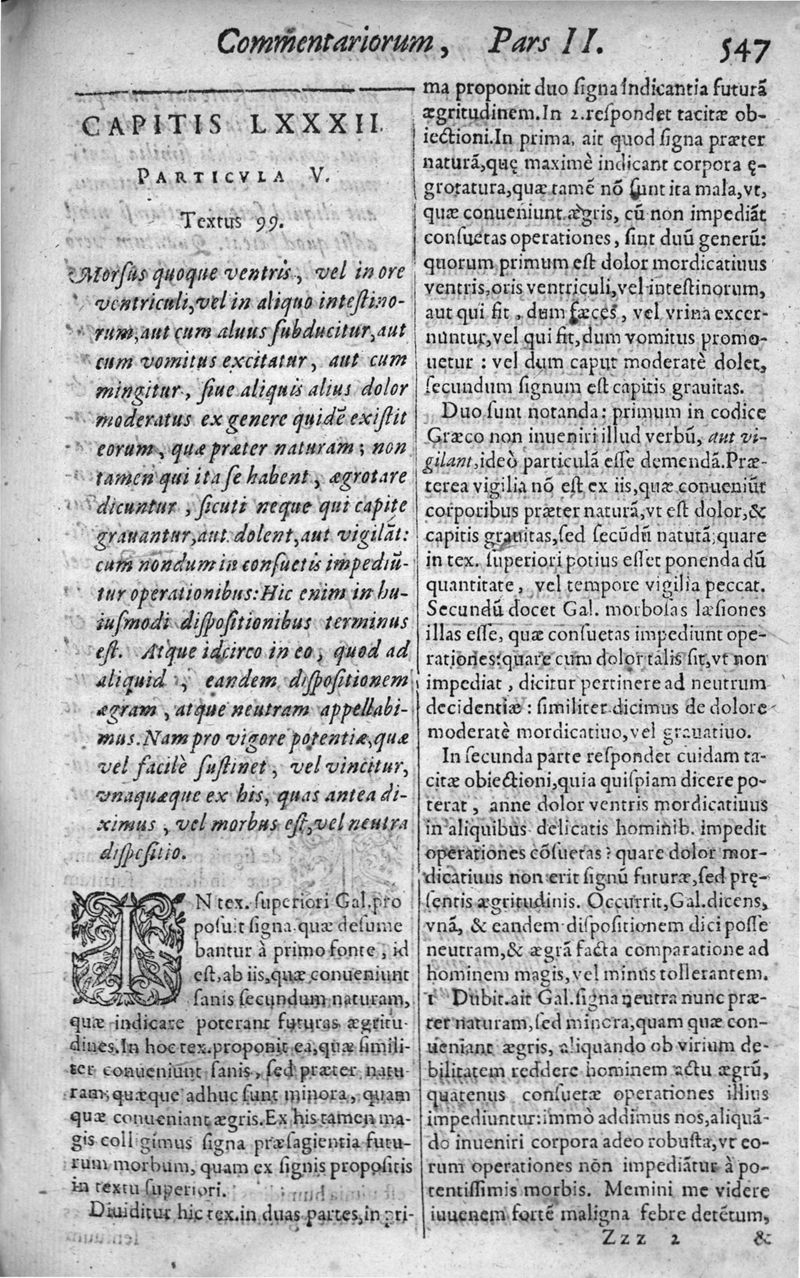 Comm̃entariorum, Pars II. 547
CAPITIS LXXXII.
PARTICVLA V.
Textus 99.
Morsus quoque ventris, vel in ore
ventriculi, vel in aliquo intestino-
rum, aut cum aluus subducitur, aut
cum vomitus excitatur, aut cum
mingitur, siue aliquis alius dolor
moderatus ex genere quidẽ existit
eorum, quæ præter naturam; non
tamen qui ita se habent, ægrotare
dicuntur, sicuti neque qui capite
grauantur, aut dolent, aut vigilãt:
cum nondum in consuetis impediũ-
tur operationibus: Hic enim in hu-
iusmodi dispositionibus terminus
est. Atque idcirco in eo, quod ad
aliquid, eandem dispositionem
ægram, atque neutram appellabi-
mus. Nam pro vigore potentiæ, quæ
vel facilè sustinet, vel vincitur,
vnaquæque ex his, quas antea di-
ximus, vel morbus est, vel neutra
dispositio.
IN tex. superiori Gal. pro
posuit signa quæ desume
bantur à primo fonte, id
est, ab iis, quæ conueniunt
sanis secundum naturam,
quæ indicare poterant futuras ægritu-
dines. In hoc tex. proponit ea, quæ simili-
ter conueniũt sanis, sed præter natu
ram; quæque adhuc sunt minora, quam
quæ conueniant ægris. Ex his tamen ma-
gis colligimus signa præsagientia futu-
rum morbum, quam ex signis propositis
in textu superiori.
Diuiditur hic tex. in duas partes, in pri-
ma proponit duo signa indicantia futurã
ægritudinem. In 2. respondet tacitæ ob-
iectioni. In prima, ait quod signa præter
naturã, quę maximè indicant corpora ę-
grotatura, quæ tamẽ nõ sunt ita mala, vt,
quæ conueniunt ægris, cũ non impediãt
consuetas operationes, sint duũ generũ:
quorum primum est dolor mordicatiuus
ventris, oris ventriculi, vel intestinorum,
aut qui fit, dum fæces, vel vrina excer-
nuntur, vel qui fit, dum vomitus promo-
uetur: vel dum caput moderatè dolet,
secundum signum est capitis grauitas.
Duo sunt notanda: primum in codice
Græco non inueniri illud verbũ, aut vi-
gilant, ideò particulã esse demendã. Præ-
terea vigilia nõ est ex iis, quæ conueniũt
corporibus præter naturã, vt est dolor, &
capitis grauitas, sed secũdũ naturã; quare
in tex. superiori potius esset ponenda dũ
quantitate, vel tempore vigilia peccat.
Secundũ docet Gal. morbosas læsiones
illas esse, quæ consuetas impediunt ope-
rationes: quare cum dolor talis sit, vt non
impediat, dicitur pertinere ad neutrum
decidentiæ: similiter dicimus de dolore
moderatè mordicatiuo, vel grauatiuo.
In secunda parte respondet cuidam ta-
citæ obiectioni, quia quispiam dicere po-
terat, anne dolor ventris mordicatiuus
in aliquibus delicatis hominib. impedit
operationes cõsuetas? quare dolor mor-
dicatiuus non erit signũ futuræ, sed prę-
sentis ægritudinis. Occurrit, Gal. dicens,
vnã, & eandem dispositionem dici posse
neutram, & ægrã facta comparatione ad
hominem magis, vel minus tollerantem.
1 Dubit. ait Gal. signa neutra nunc præ-
ter naturam, sed minora, quam quæ con-
ueniant ægris, aliquando ob virium de-
bilitatem reddere hominem actu ægrũ,
quatenus consuetæ operationes illius
impediuntur: immò addimus nos, aliquã-
do inueniri corpora adeo robusta, vt eo-
rum operationes nõn impediãtur à po-
tentissimis morbis. Memini me videre
iuuenem fortẽ maligna febre detẽtum,
Zzz 2 &